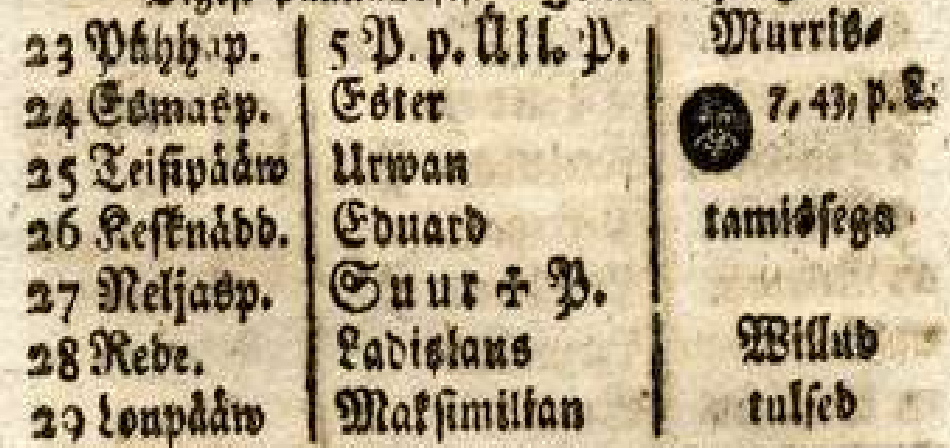 23 Pühh. p. 5 P. p. Üll. P. Murris⸗
24 Esmasp. Ester 7, 43, p. L.
25 Teisipääw Urwan
26 Kesknädd. Eduard tamissegs
27 Neljasp. Suur ✠ P.
28 Rede. Ladislaus Willud
29 Loupääw Maksimilian tulsed